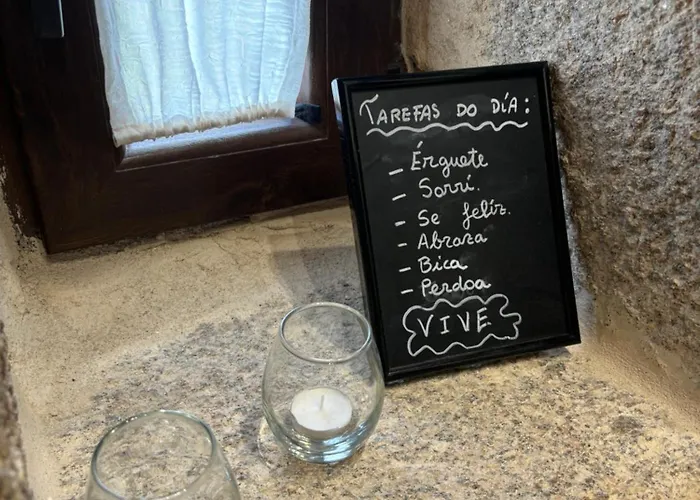 TAREFAS DO DÍA:
- Érguete
- Sorrí.
- Se feliz.
- Abraza
- Bica
- Perdoa
VIVE